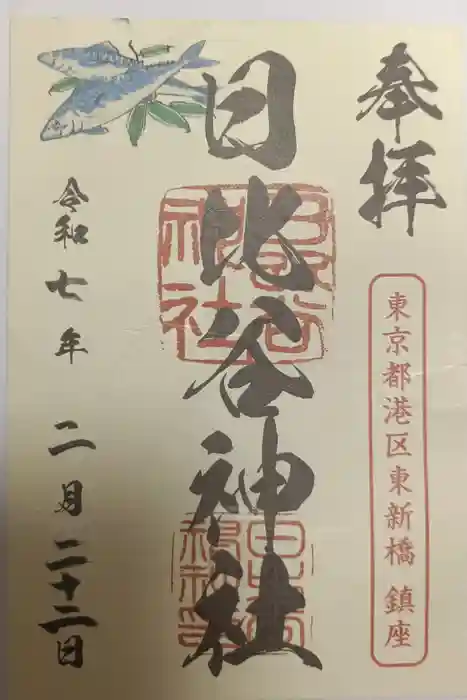 奉拝
東京都港区東新橋 鎮座
日比谷神社
令和七年 二月二十二日